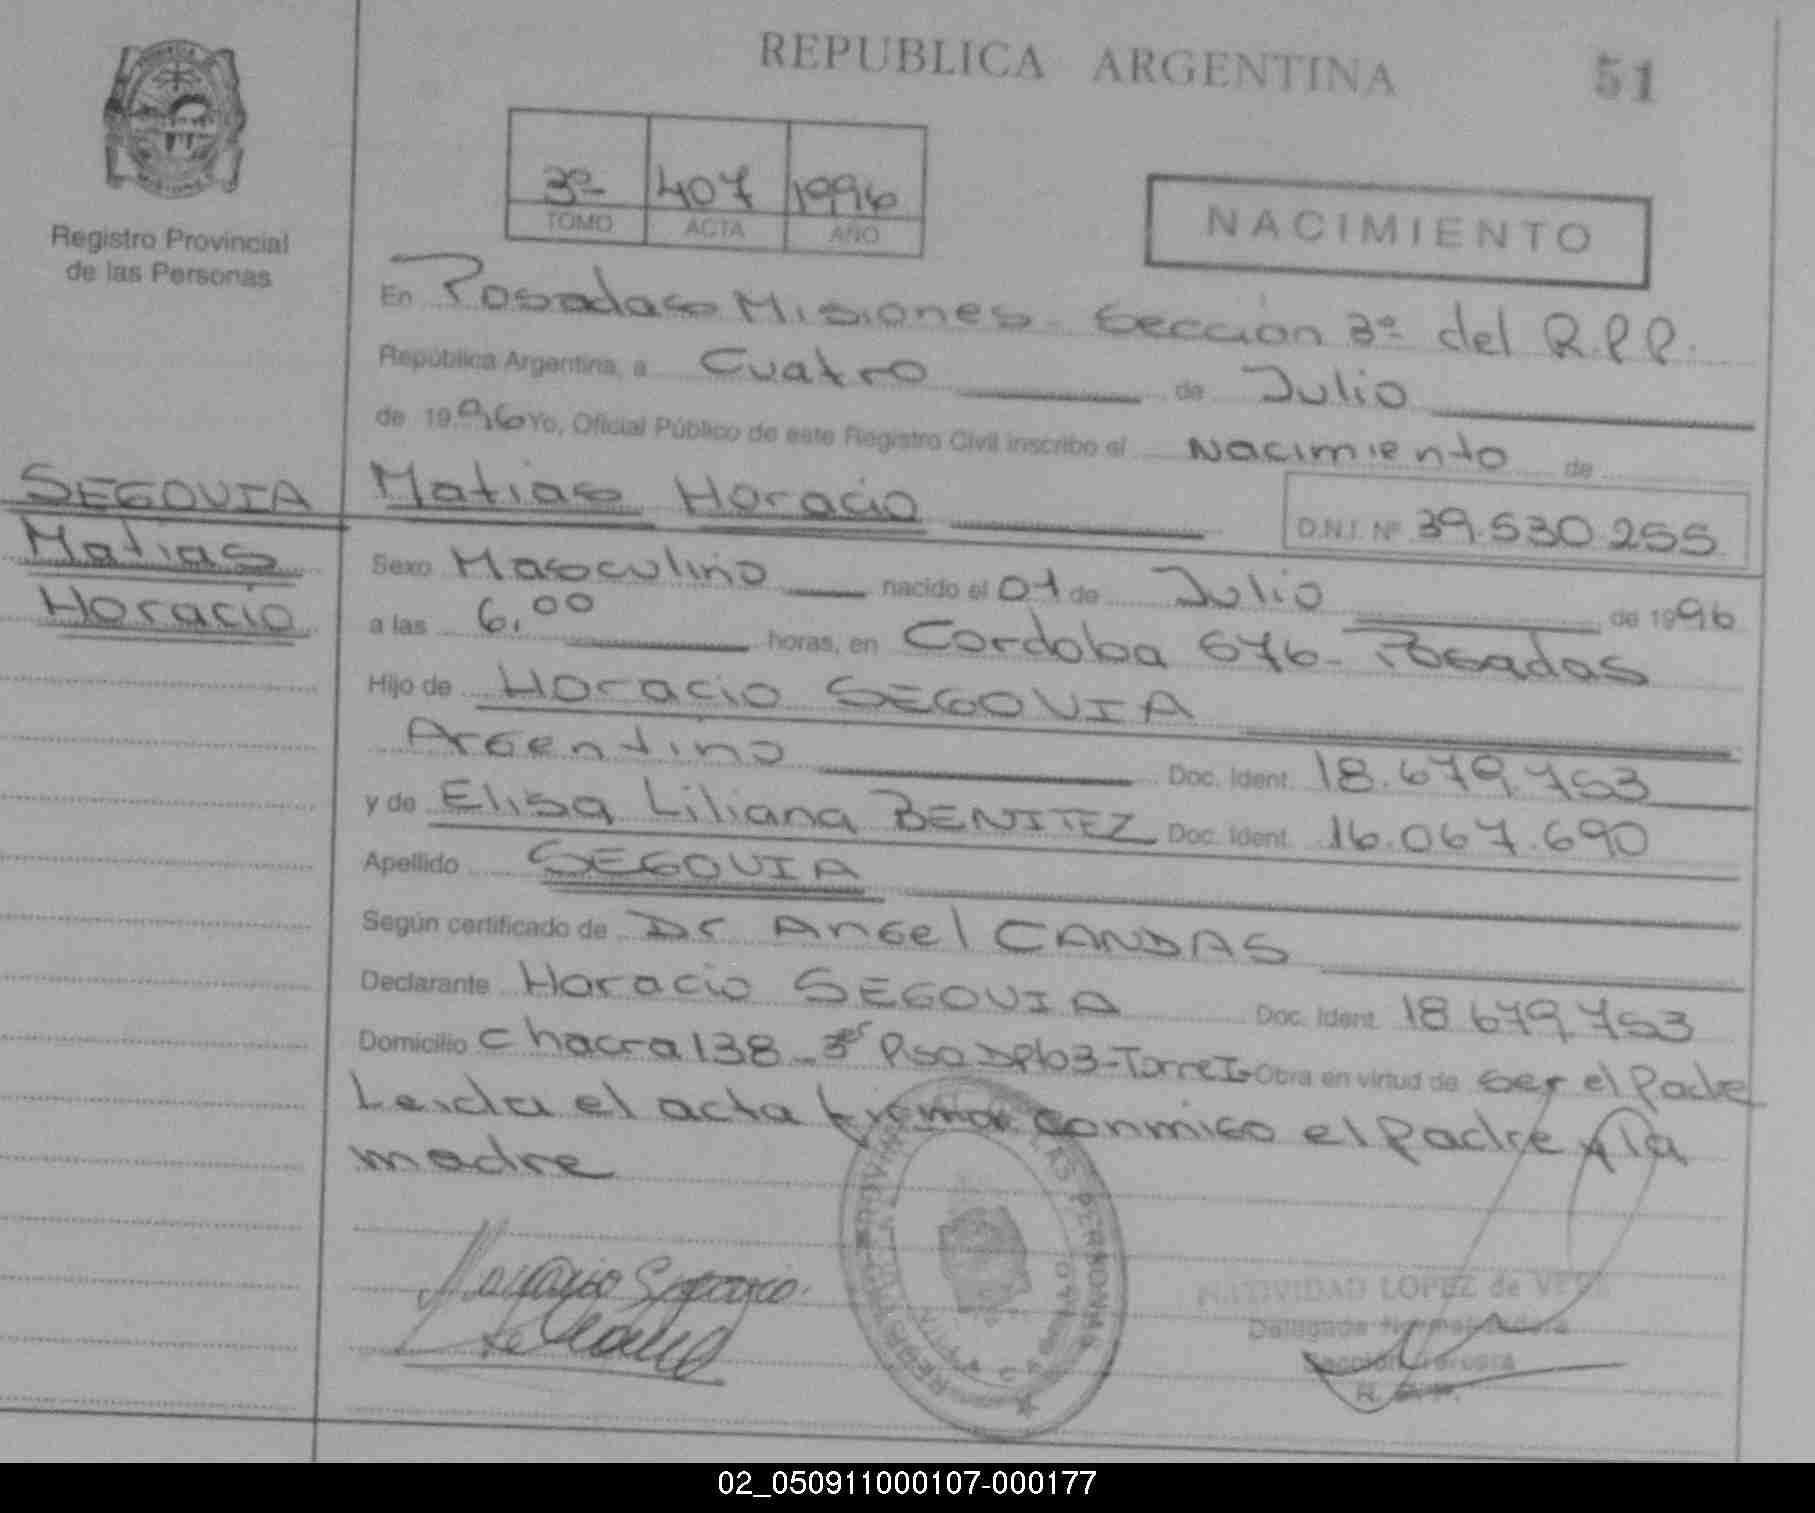 REPUBLICA ARGENTINA
51
3º 407 1996
TOMO ACTA AÑO
NACIMIENTO
Registro Provincial
de las Personas
En Posadas Misiones - Sección 3º del R.P.P.
República Argentina, a Cuatro de Julio
de 1996 Yo, Oficial Público de este Registro Civil inscribo el Nacimiento de
SEGOVIA
Matias
Horacio
Matias Horacio
D.N.I. Nº 39.530.255
Sexo Masculino nacido el 01 de Julio de 1996
a las 6,00 horas, en Cordoba 676 - Posadas
Hijo de Horacio SEGOVIA
Argentino Doc. Ident. 18.679.753
y de Elisa Liliana BENITEZ Doc. Ident. 16.067.690
Apellido SEGOVIA
Según certificado de Dr Angel CANDAS
Declarante Horacio SEGOVIA Doc. Ident. 18.679.753
Domicilio Chacra 138 - 3er Piso Dpto 3 - Torre I - Obra en virtud de ser el Padre
Leida el acta firman conmigo el padre y la
madre
Horacio Segovia
NATIVIDAD LOPEZ de VEGA
Delegada Normalizadora
Sección Tercera
R. P. P.
02_050911000107-000177